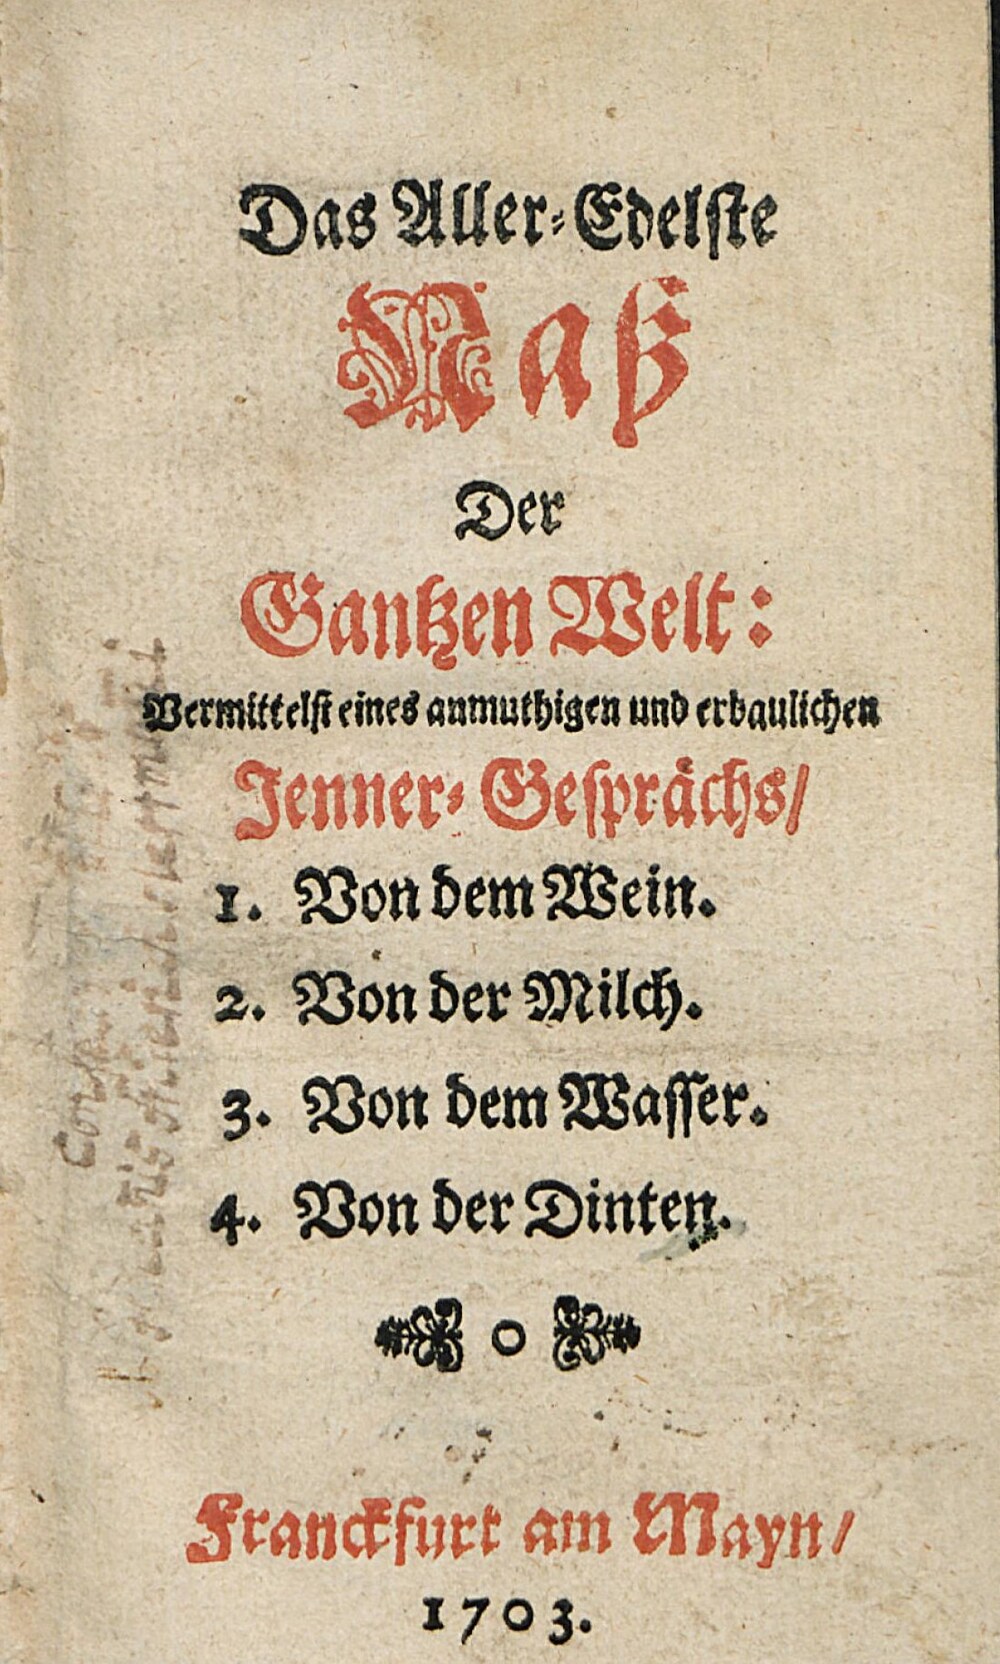 Das Aller-Edelste
Naß
Der
Gantzen Welt:
Vermittelst eines anmuthigen und erbaulichen
Jenner-Gesprächs/
1. Von dem Wein.
2. Von der Milch.
3. Von dem Wasser.
4. Von der Dinten.
Franckfurt am Mayn/
1703.